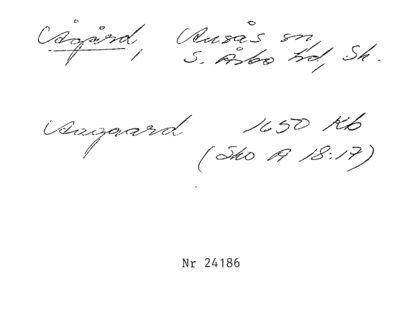 Ågård, Ausås sn,
S. Åsbo hd, Sk.
Aagaard 1650 Kb
(Sko A 18:17)
Nr 24186